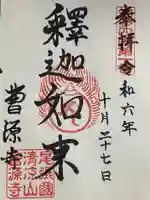 奉拝 令和六年
十月二十七日
釋迦如来
曹源寺
尾張國
清涼山
曹源寺